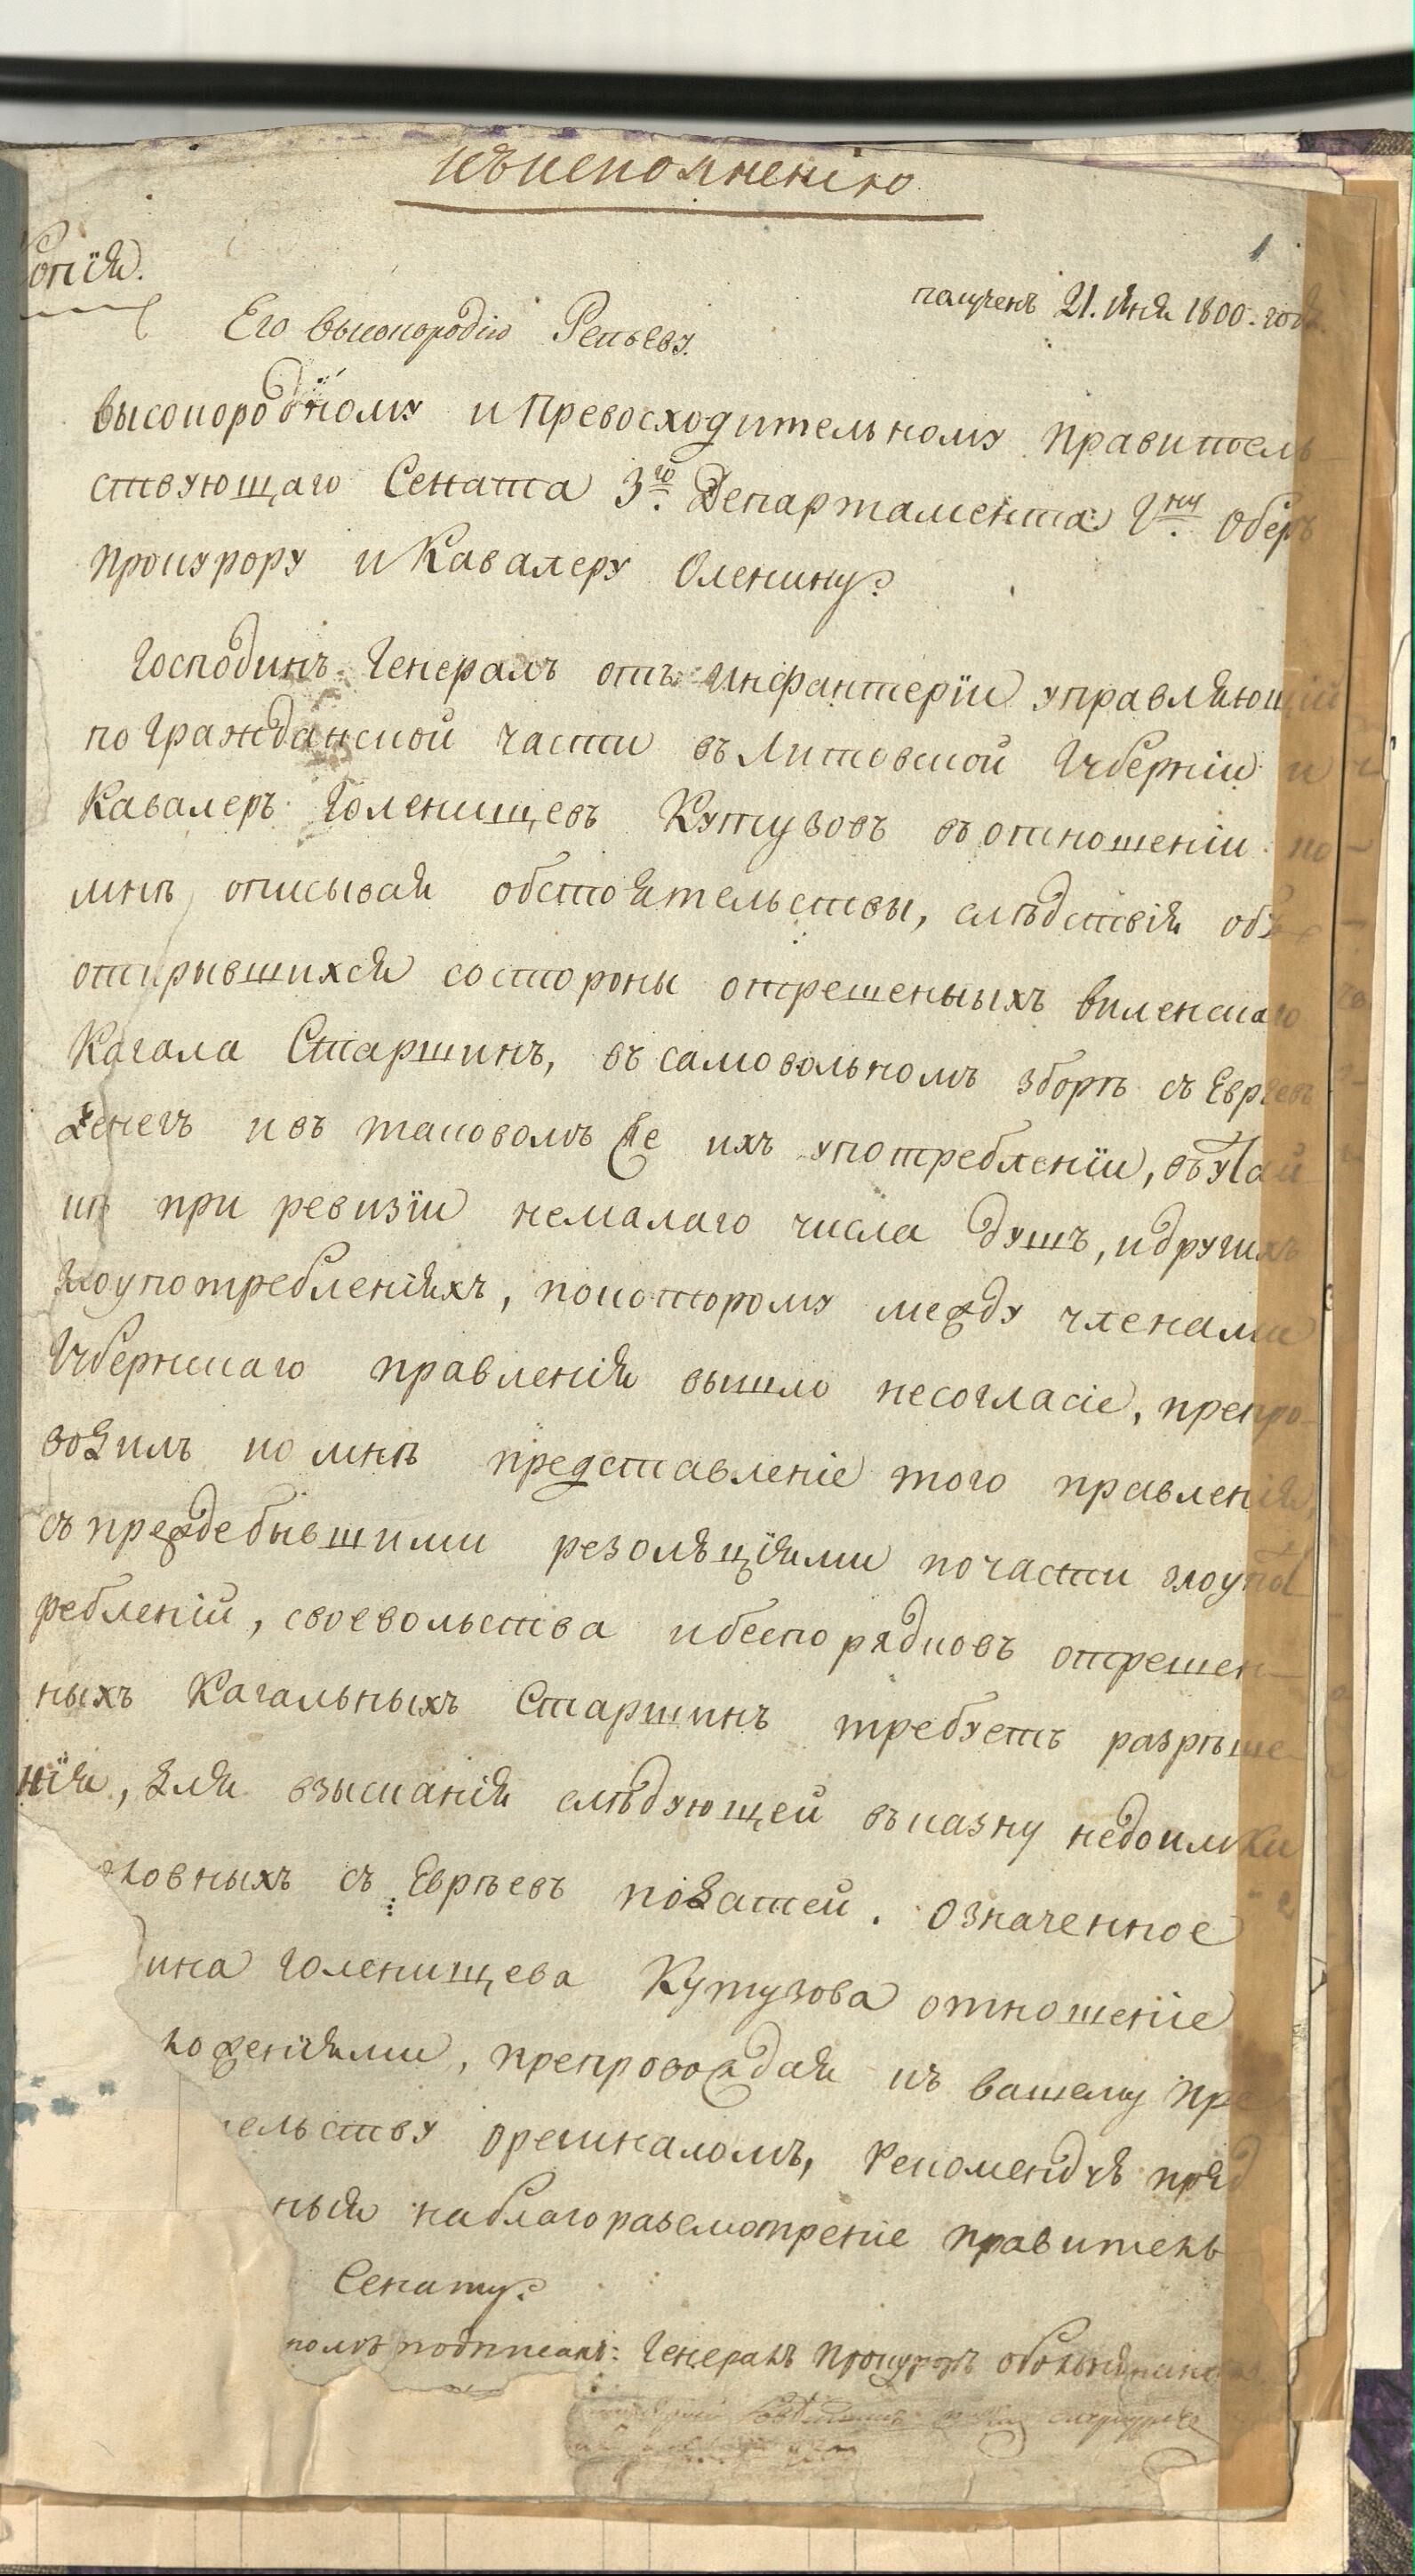 къ исполненію
1
Копія.
полученъ 21. Июня 1800. года
Его высокородію Репьеву.
высокородному и превосходительному правитель
ствующаго Сената 3го. Департамента Гну. Оберъ
прокурору и Кавалеру Оленину.
Господинъ Генералъ отъ инфантеріи управляющій
по гражданской части въ Литовской Губерніи и
Кавалеръ Голенищевъ Кутузовъ въ отношеніи ко
мнѣ описывая обстоятельствы, слѣдствія объ
открывшихся состороны отрешенныхъ виленскаго
Кагала Старшинъ, въ самовольномъ зборѣ съ Евреевъ
денегъ и въ таковомъ же ихъ употребленіи, въ утай
кѣ при ревизіи немалаго числа душъ, и другихъ
злоупотребленіяхъ, покоторому между членами
Губернскаго правленія вышло несогласіе, препро-
водилъ ко мнѣ представленіе того правленія,
съ преждебывшими резолюціями почасти злоупот
ребленій, своевольства и беспорядковъ отрешен-
ныхъ Кагальныхъ Старшинъ требуетъ разрѣше-
нія, для взысканія слѣдующей въ казну недоимки
ловныхъ съ Евреевъ податей. Означенное
ина Голенищева Кутузова отношеніе
ложеніями, препровождая къ вашему пре
тельству орегиналомъ, рекомендую пред
ныя на благоразсмотреніе правитель
Сенату.
номъ подписалъ: Генералъ Прокуроръ Обольянинов